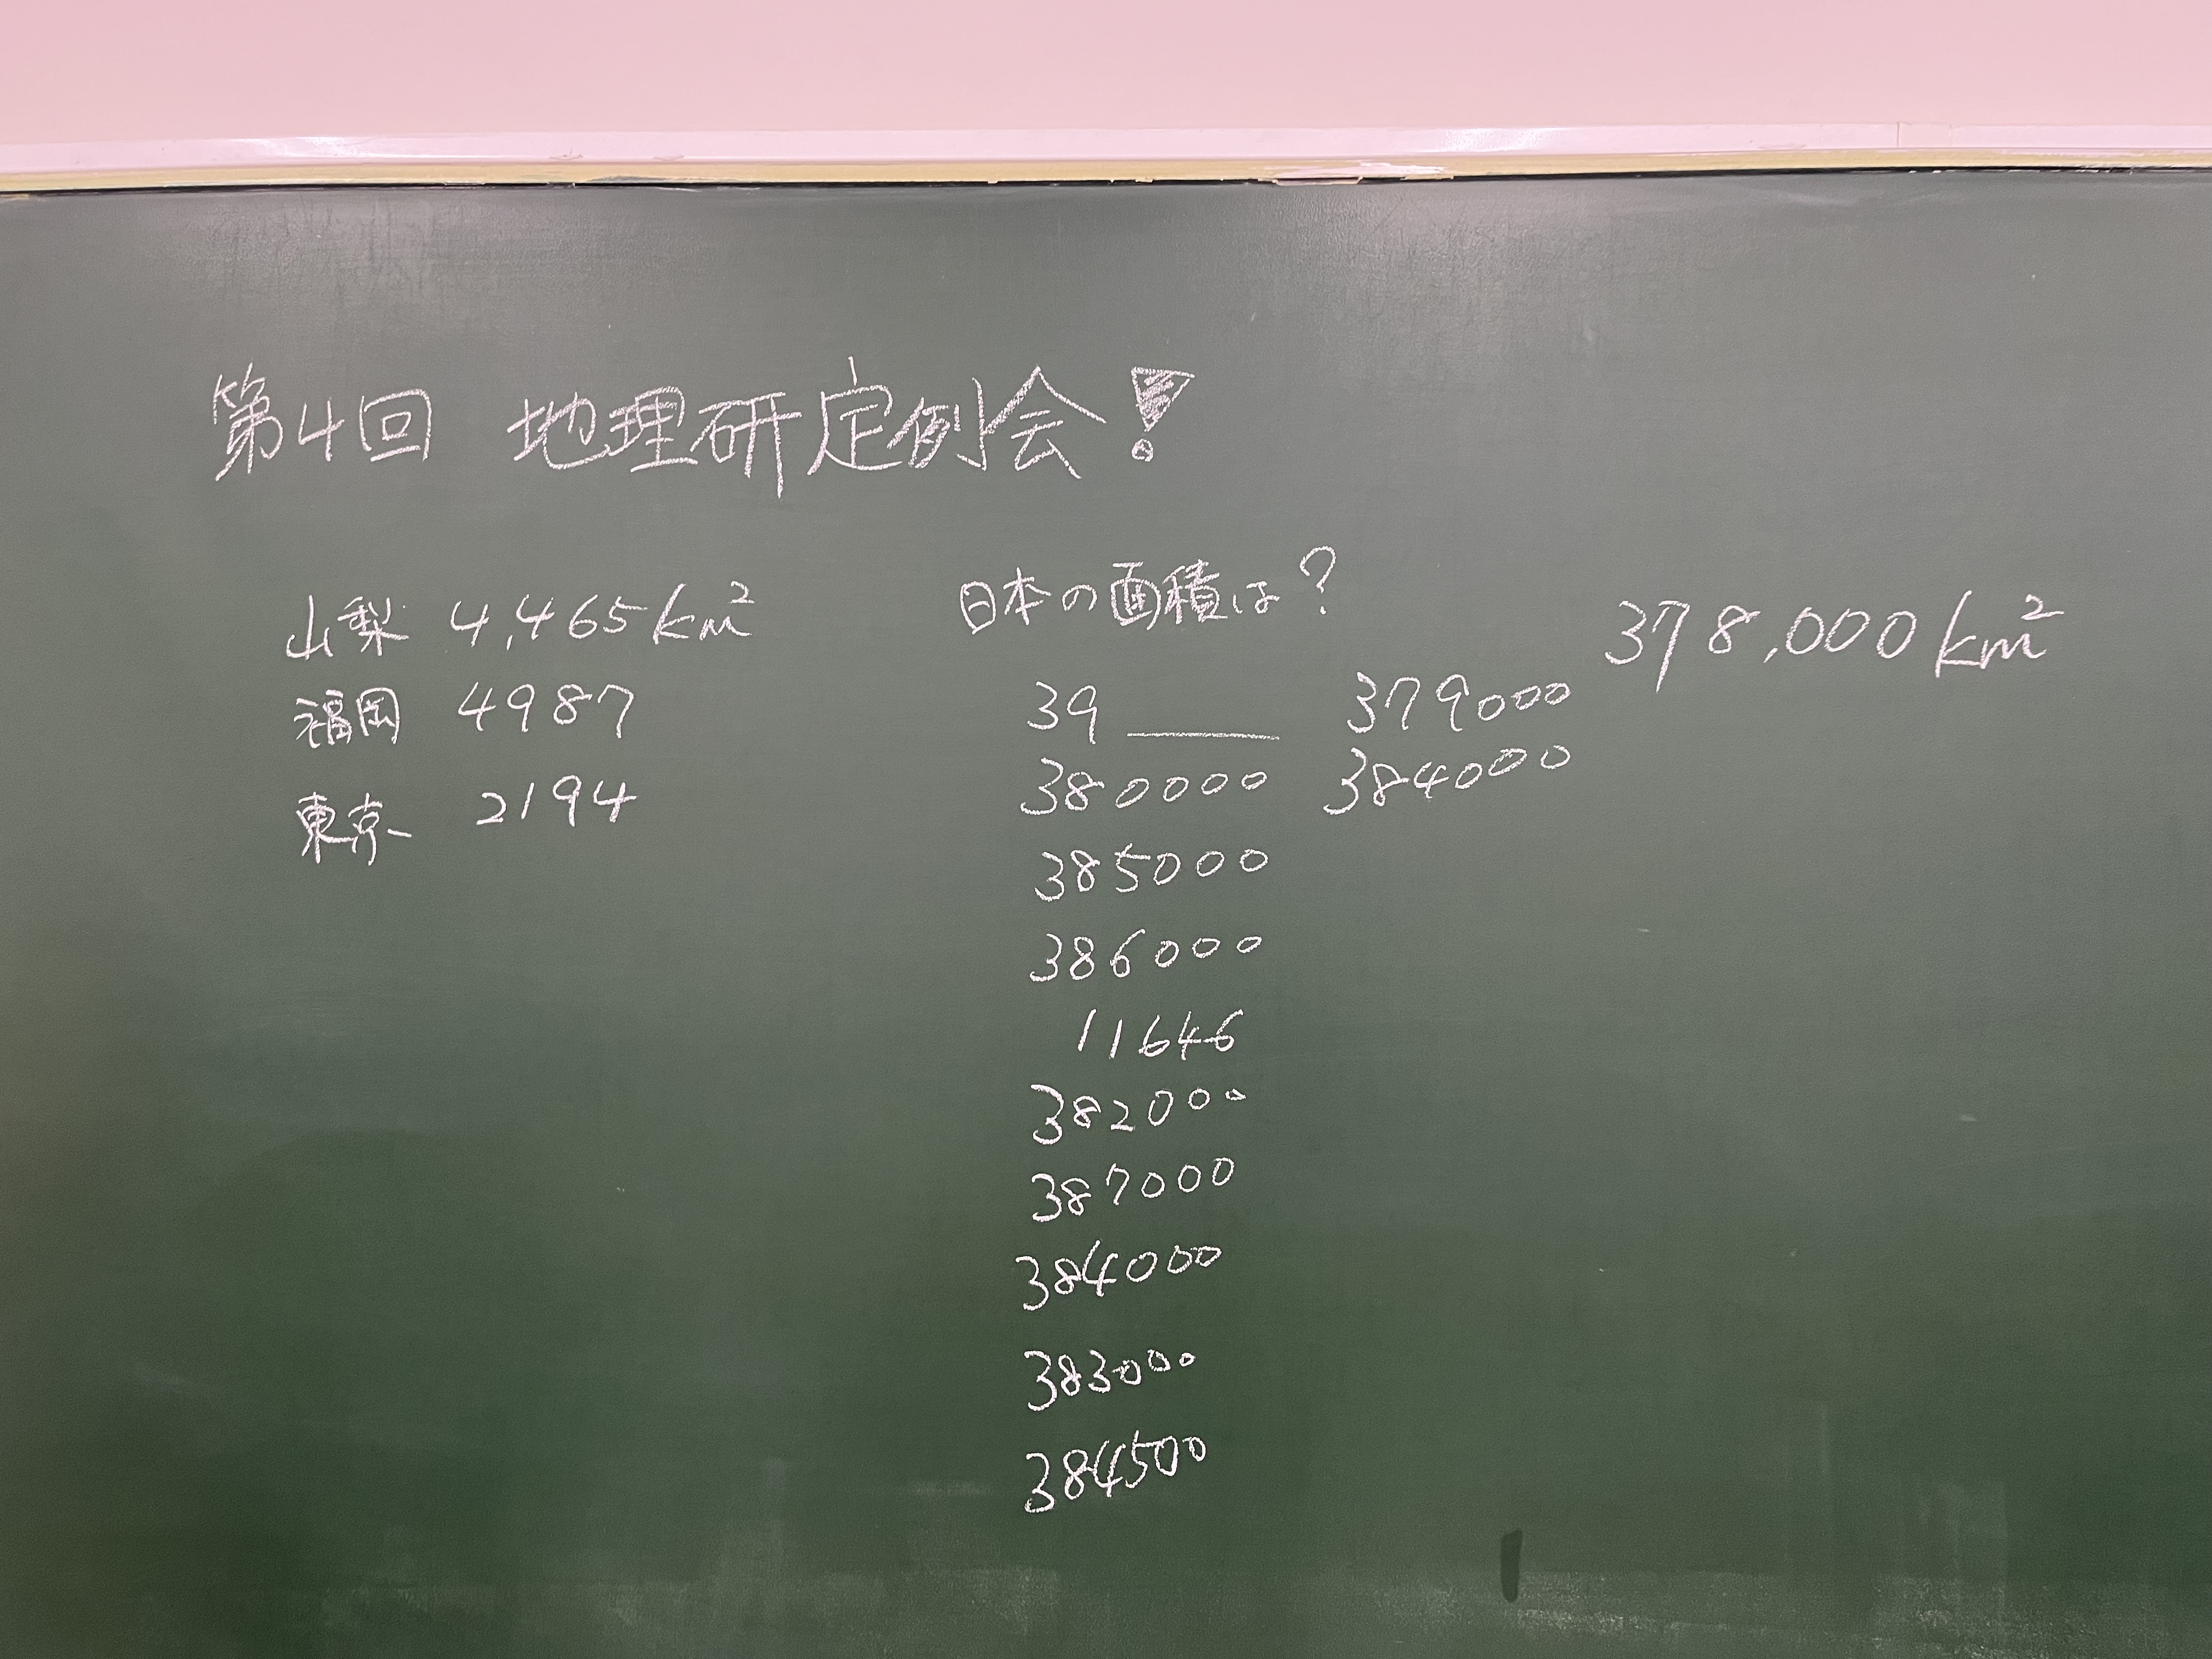 第4回 地理研定例会!
山梨 4,465km²
福岡 4987
東京 2194
日本の面積は?
39 ______
380000
385000
386000
11646
382000
387000
384000
383000
384500
379000
384000
378,000km²